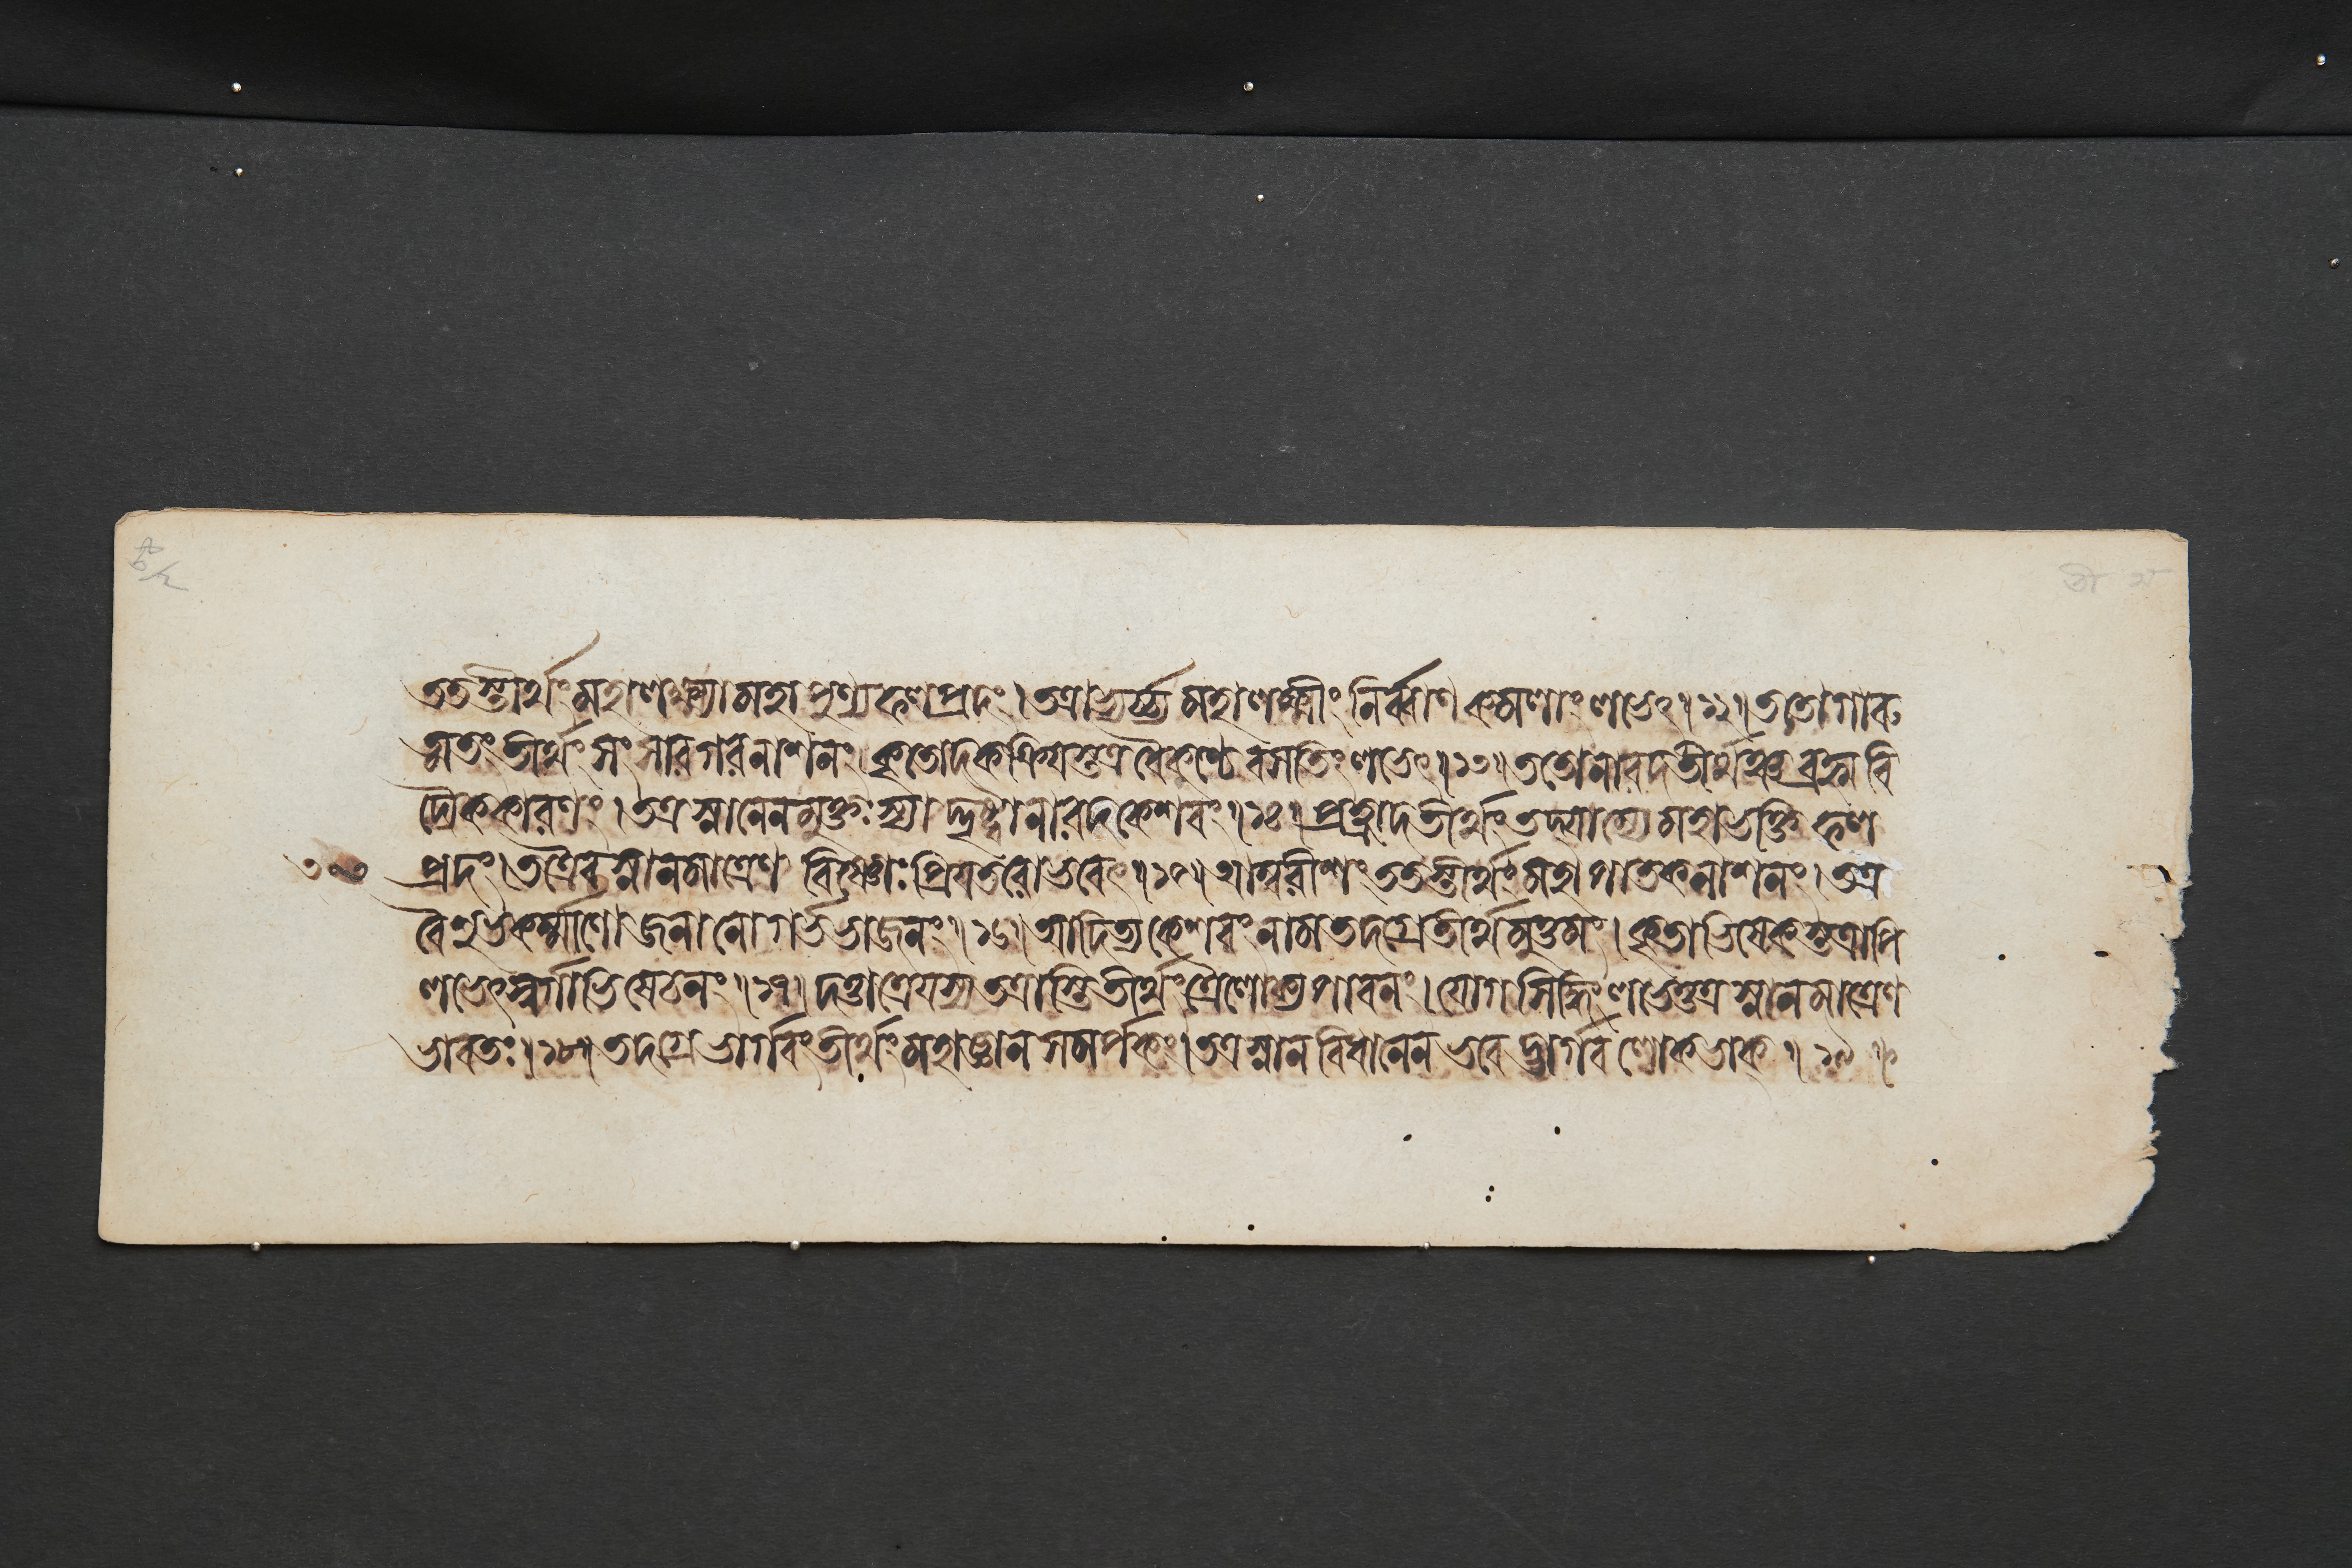 ততস্তীর্থং মহালক্ষ্ম্যা মহাপুণ্যফলপ্রদং । তত্রাভ্যর্চ্চ্য মহালক্ষ্মীং নির্ব্বাণকমলাং লভেৎ ॥ ১২ ॥ ততো গারু
ত্মতং তীর্থং সংসারগরনাশনং । কৃতোদকক্রিয়স্তত্র বৈকুণ্ঠে বসতিং লভেৎ ॥ ১৩ ॥ ততো নারদতীর্থঞ্চ ব্রহ্মবি
দ্যৈককারণং । তত্র স্নানেন মুক্তঃ স্যাদ্দৃষ্ট্বা নারদকেশবং ॥ ১৪ ॥ প্রহ্লাদতীর্থং তদ্যাম্যে মহাভক্তিফল
প্রদং । তত্রৈব স্নানমাত্রেণ বিষ্ণোঃ প্রিয়তরো ভবেৎ ॥ ১৫ ॥ আম্বরীশং ততস্তীর্থং মহাপাতকনাশনং । তত্র
বৈ শুভকর্ম্মাণো জনা নো গর্ভভাজনং ॥ ১৬ ॥ আদিত্যকেশবং নাম তদগ্রে তীর্থমুত্তমং । কৃতাভিষেকস্তত্রাপি
লভেৎ স্বর্গাভিষেচনং ॥ ১৭ ॥ দত্তাত্রেয়স্য তত্রাস্তি তীর্থং ত্রৈলোক্যপাবনং । যোগসিদ্ধিং লভেত্তত্র স্নানমাত্রেণ
ভাবতঃ ॥ ১৮ ॥ তদগ্রে ভার্গবং তীর্থং মহাজ্ঞানসমর্পকং । তত্র স্নানবিধানেন ভবেদ্ভার্গবলোকভাক্ ॥ ১৯ ॥